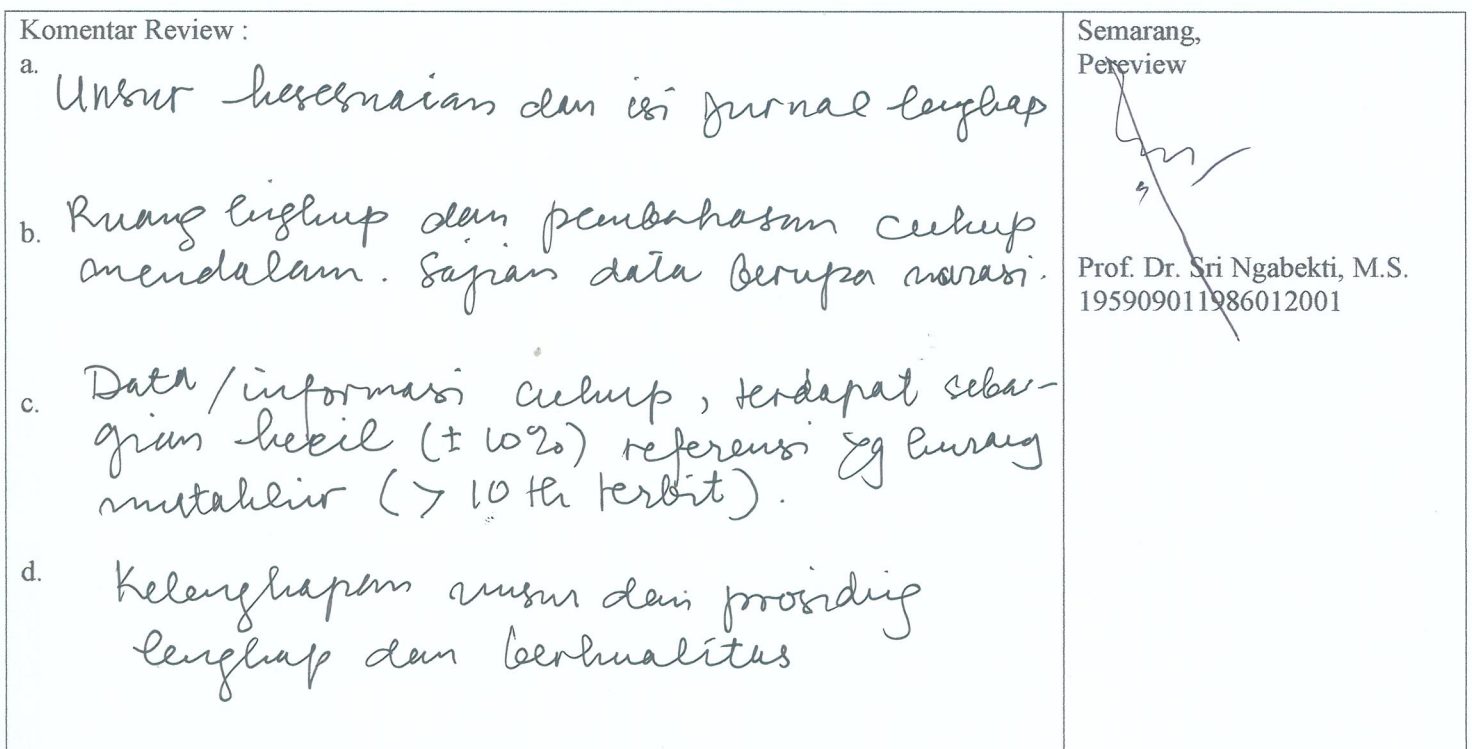 Komentar Review :
a. Unsur kesesuaian dan isi jurnal lengkap
b. Ruang lingkup dan pembahasan cukup
mendalam. Sajian data berupa narasi.
c. Data/informasi cukup, terdapat seba-
gian kecil (± 10%) referensi yg kurang
mutakhir (> 10 th terbit).
d. Kelengkapan unsur dan prosiding
lengkap dan berkualitas
Semarang,
Pereview
Prof. Dr. Sri Ngabekti, M.S.
195909011986012001